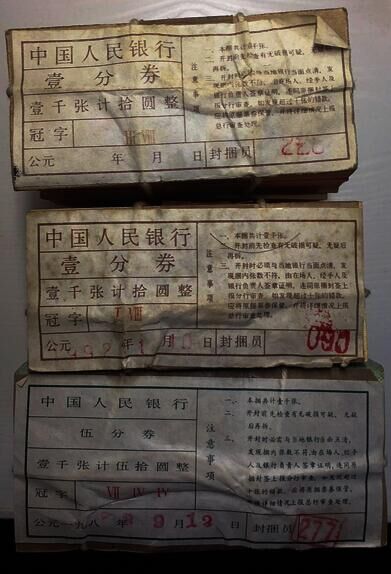 中国人民银行
壹分券
壹千张计拾圆整
冠字 III VIII
公元 年 月 日 封捆员
注意事项
一、本捆共计壹千张。
二、开封前先检查有无破损可疑,无疑后再拆。
三、开封时必须与当地银行当面点清,发现捆内张数不符,由在场人、经手人及银行负责人签章证明,连同原捆封签上报分行审查,如发现超过十张的错款,应将原捆票券保管,并将详细情况上报总行审查处理。
中国人民银行
壹分券
壹千张计拾圆整
冠字 I VIII
公元 年 月 日 封捆员
注意事项
一、本捆共计壹千张。
二、开封前先检查有无破损可疑,无疑后再拆。
三、开封时必须与当地银行当面点清,发现捆内张数不符,由在场人、经手人及银行负责人签章证明,连同原捆封签上报分行审查,如发现超过十张的错款,应将原捆票券保管,并将详细情况上报总行审查处理。
090
中国人民银行
伍分券
壹千张计伍拾圆整
冠字 VII IV IV
公元一九八 年9月12日 封捆员
注意事项
一、本捆共计壹千张。
二、开封前先检查有无破损可疑,无疑后再拆。
三、开封时必需与当地银行当面点清,发现捆内张数不符,由在场人、经手人及银行负责人签章证明,连同原捆封签上报分行审查,如发现超过十张的错款,应将原捆票券保管,并将详细情况上报总行审查处理。
277